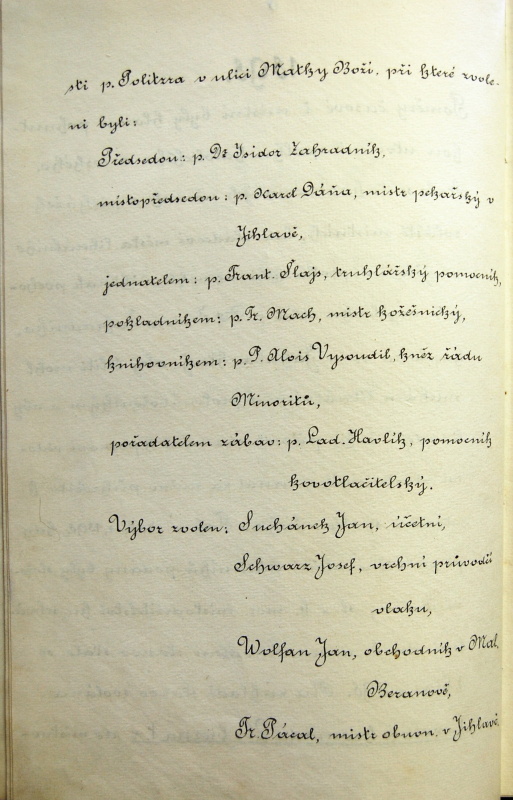 sti p. Politzra v ulici Matky Boží, při které zvole-
ni byli:
Předsedou: p. Dr Isidor Zahradník,
místopředsedou: p. Karel Dáňa, mistr pekařský v
Jihlavě,
jednatelem: p. Frant. Šlajs, truhlářský pomocník,
pokladníkem: p. Fr. Mach, mistr kožešnický,
knihovníkem: p. P. Alois Vysoudil, kněz řádu
Minoritů,
pořadatelem zábav: p. Lad. Havlík, pomocník
kovotlačitelský.
Výbor zvolen: Suchánek Jan, účetní,
Schwarz Josef, vrchní průvodčí
vlaku,
Wolfan Jan, obchodník v Mal.
Beranově,
Fr. Pácal, mistr obuvn. v Jihlavě.